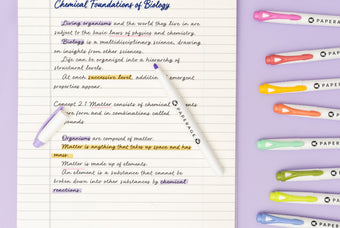 Chemical Foundations of Biology
Living organisms and the world they live in are
subject to the basic laws of physics and chemistry.
Biology is a multidisciplinary science, drawing
on insights from other sciences.
Life can be organized into a hierarchy of
structural levels.
At each successive level, additional emergent
properties appear.
Concept 2.1 Matter consists of chemical
pure form and in combinations called
Organisms are composed of matter.
Matter is anything that takes up space and has
mass.
Matter is made up of elements.
An element is a substance that cannot be
broken down into other substances by chemical
reactions.
PAPERAGE
PAPERA
PAPE
PAPERA
PAPER
PAPERA
PAP
PAPER
PAPE